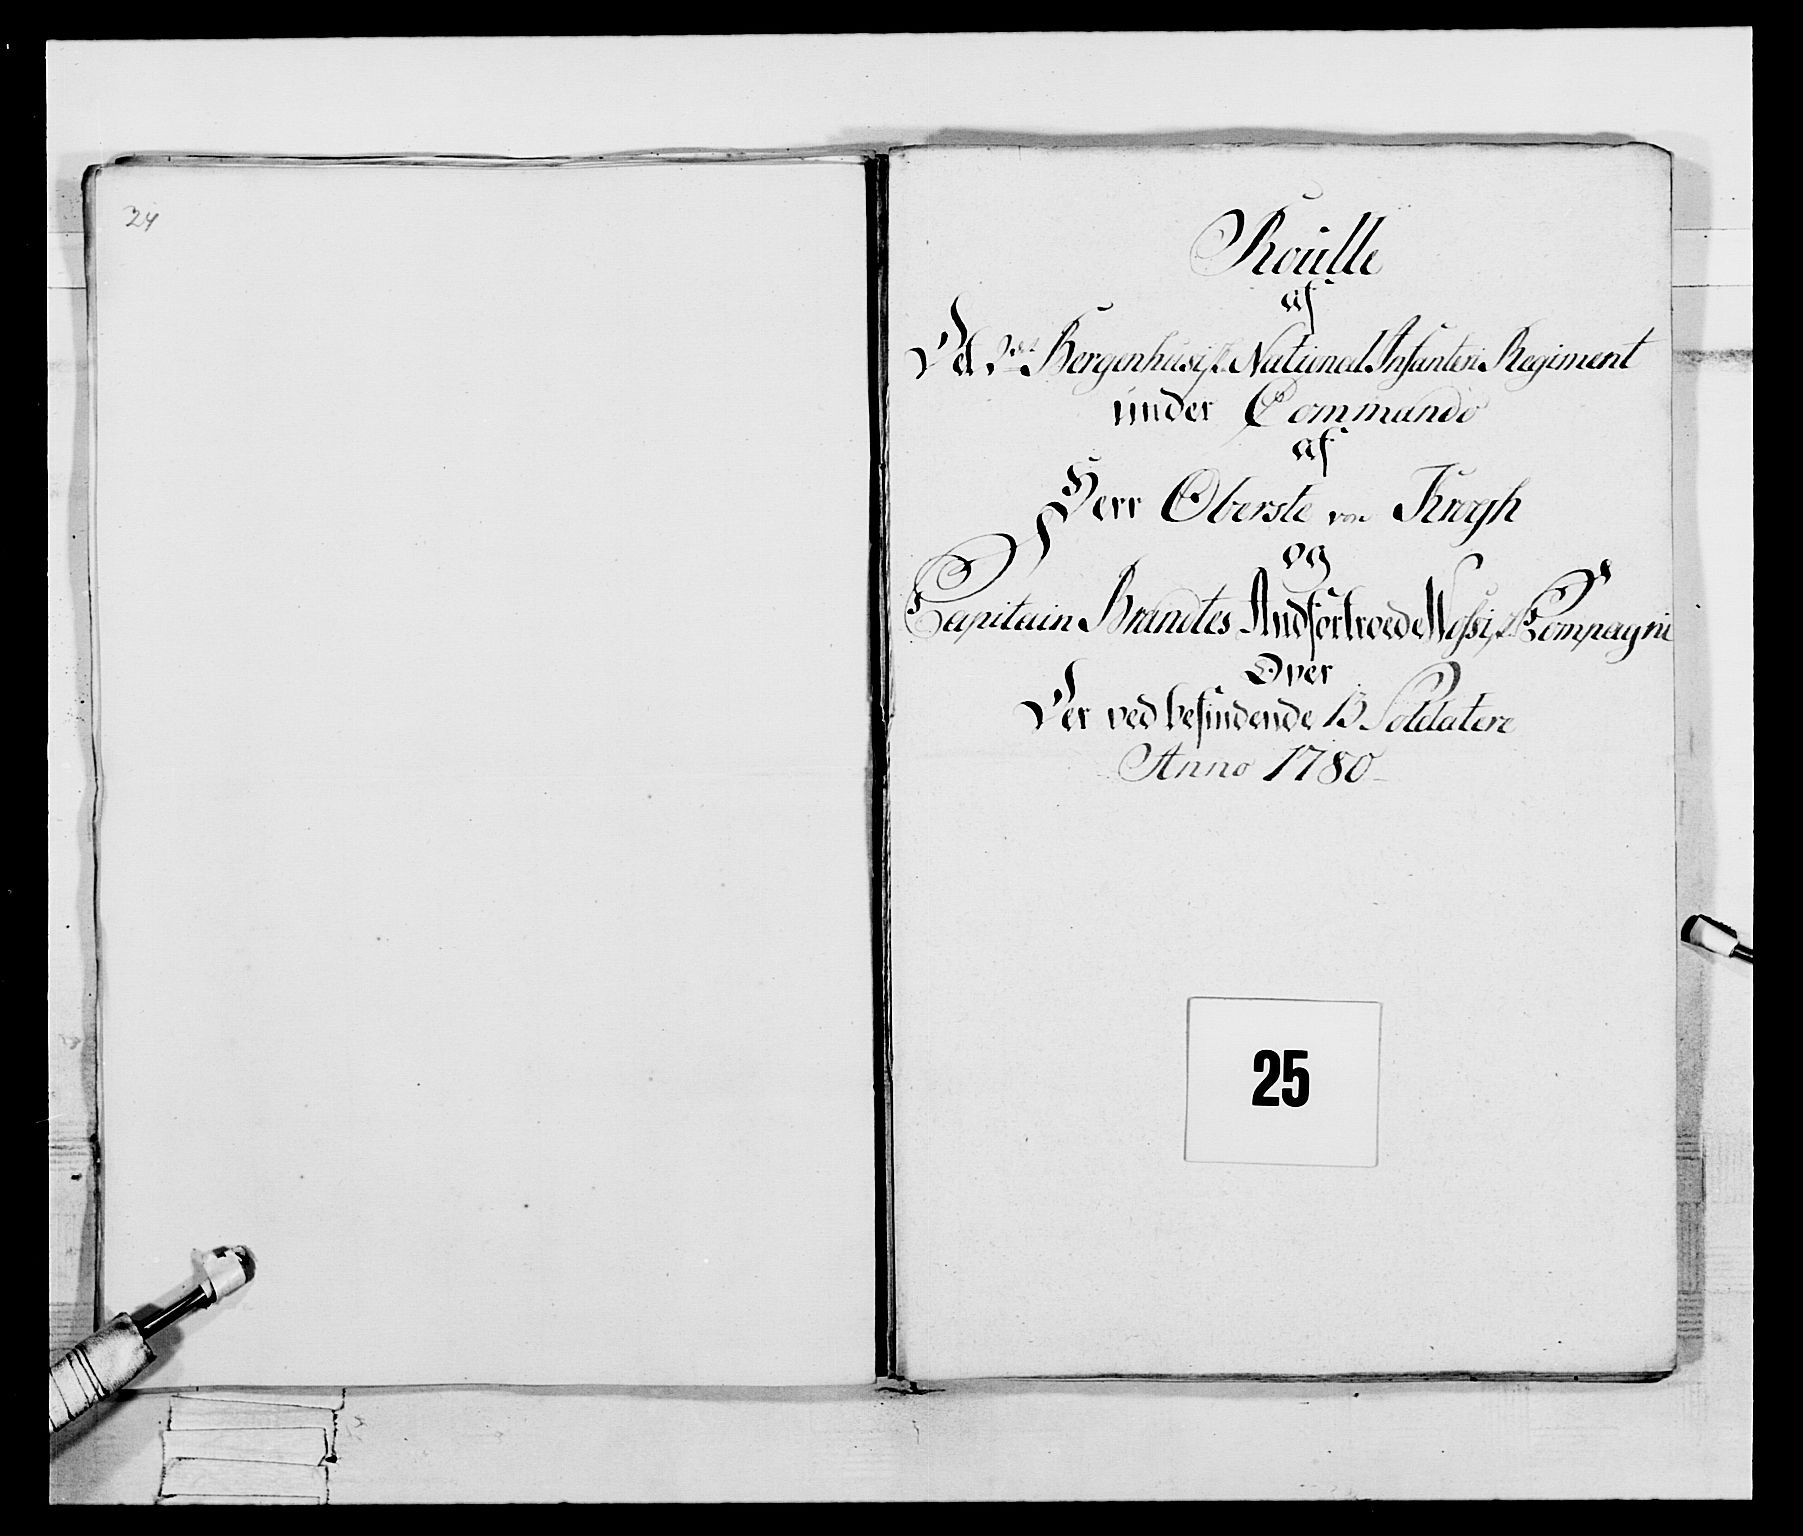 24
Roülle
af
Det 2det Bergenhusiske National Infanteri Regiment
under Commando
af
Herr Oberste von Krogh
og
Capitain Brandtes Andfortroede Wossiske Compagni
Over
Der ved befindende 13 Soldatere
Anno 1780
25